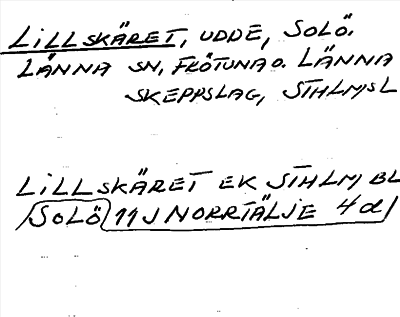 LILLSKÄRET, UDDE, SOLÖ.
LÄNNA SN, FRÖTUNA O. LÄNNA
SKEPPSLAG, STHLMSL
LILLSKÄRET EK STHLM, BL
SOLÖ 11J NORRTÄLJE 4d